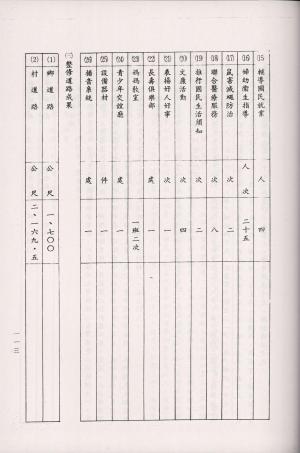 ⒂輔導國民就業 人 四
⒃婦幼衛生指導 人次 二十五
⒄鼠害滅蠅防治 次 二
⒅聯合醫療服務 次 八
⒆推行國民生活須知 次 二
⒇文康活動 次 四
(21)表揚好人好事 次 一
(22)長壽俱樂部 處 一
(23)媽媽教室 一班二次
(24)青少年交誼廳 處 一
(25)設備器材 件 一
(26)播音系統 處 一
㈠整修道路成果
⑴鄉道路 公尺 一、七〇〇
⑵村道路 公尺 二、一六九·五
一一三